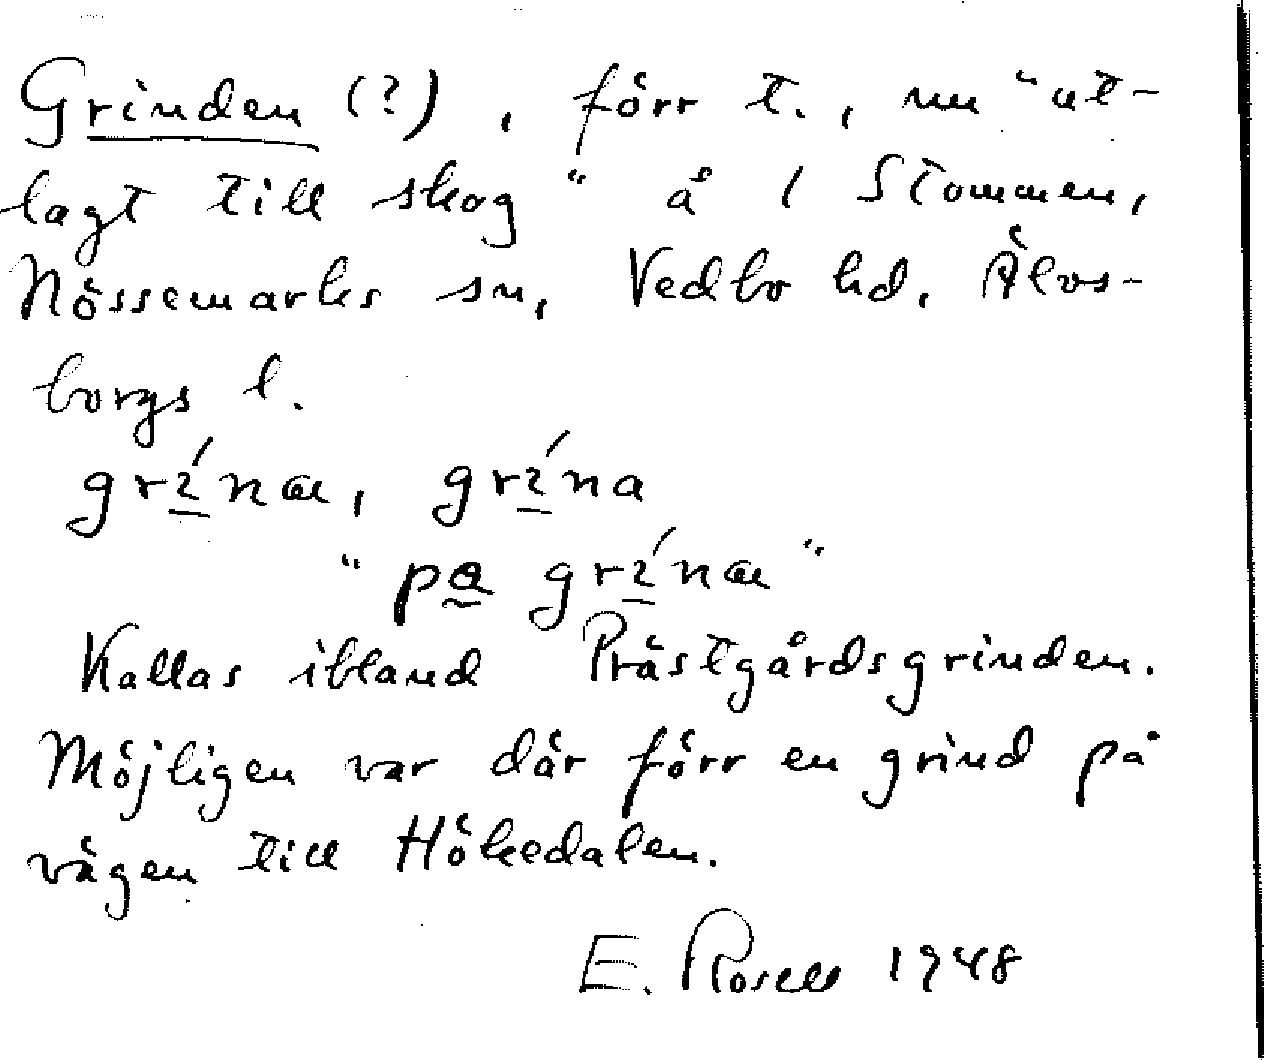 Grinden (?), förr t., nu "ut-
lagt till skog" å 1 Stommen,
Nössemarks sn, Vedbo hd. Älvs-
borgs l.
grínæ, grína
"pa grínæ"
Kallas ibland Prästgårdsgrinden.
Möjligen var där förr en grind på
vägen till Hökedalen.
E. Rosell 1948